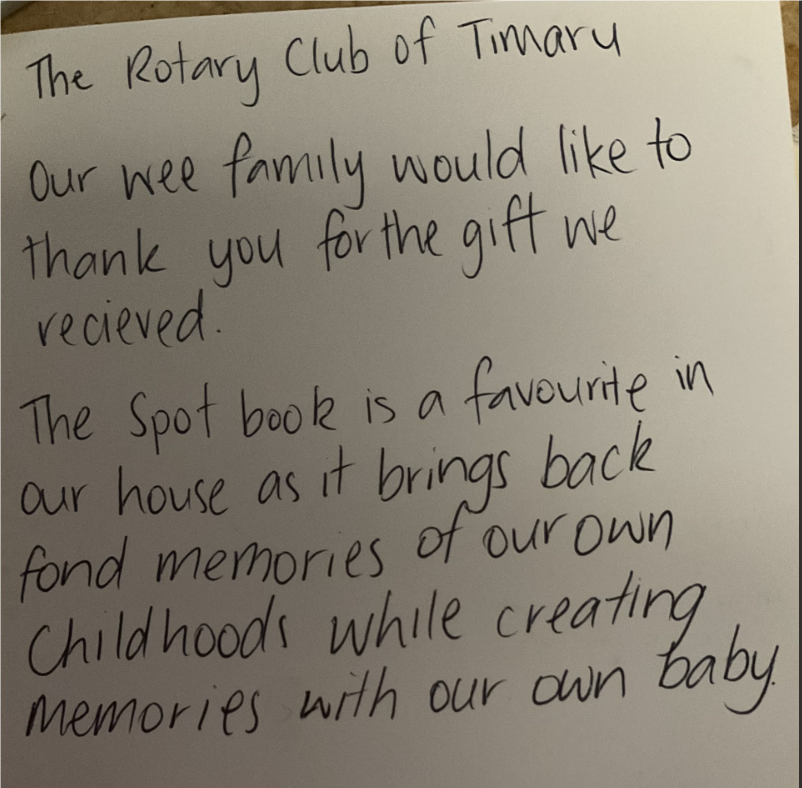 The Rotary Club of Timaru
Our wee family would like to
thank you for the gift we
recieved.
The Spot book is a favourite in
our house as it brings back
fond memories of our own
Childhoods while creating
memories with our own baby.